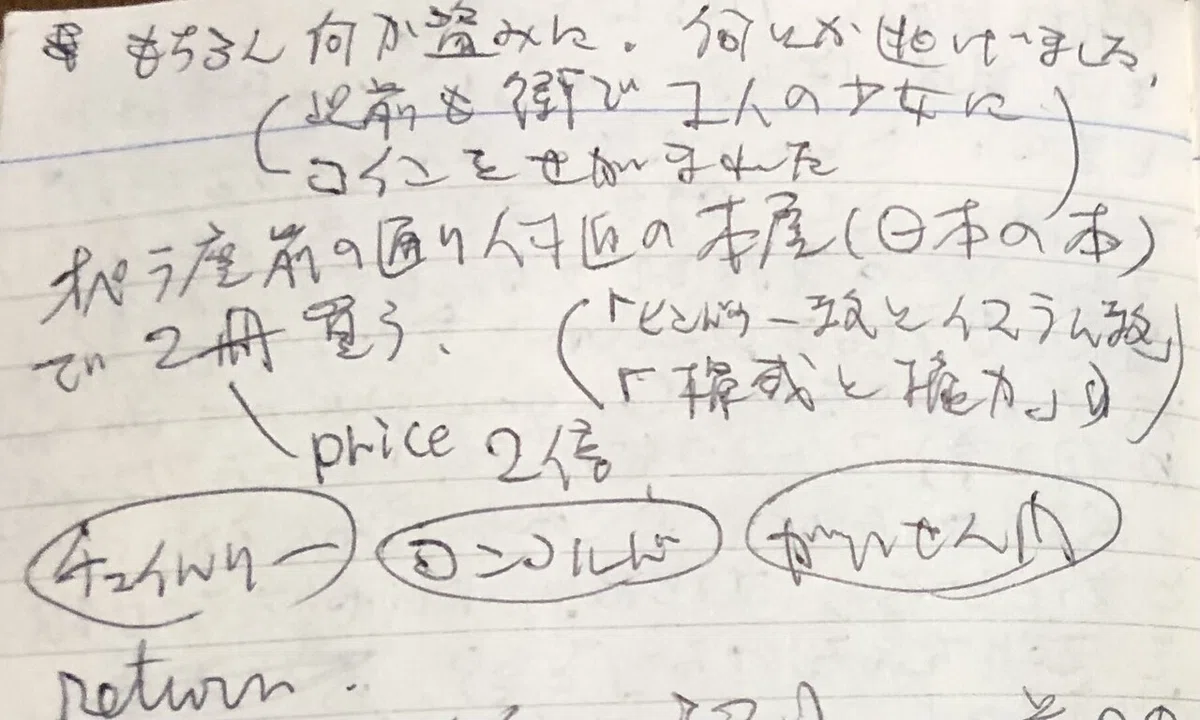 もちろん何か盗みに。何とか逃げました。
(以前も街で2人の少女に
コインをせがまれた)
オペラ座前の通り付近の本屋(日本の本)
で2冊買う.
(「ヒンドゥー教とイスラム教」
「権威と権力」)
price 2倍
チュイルリー コンコルド
return.